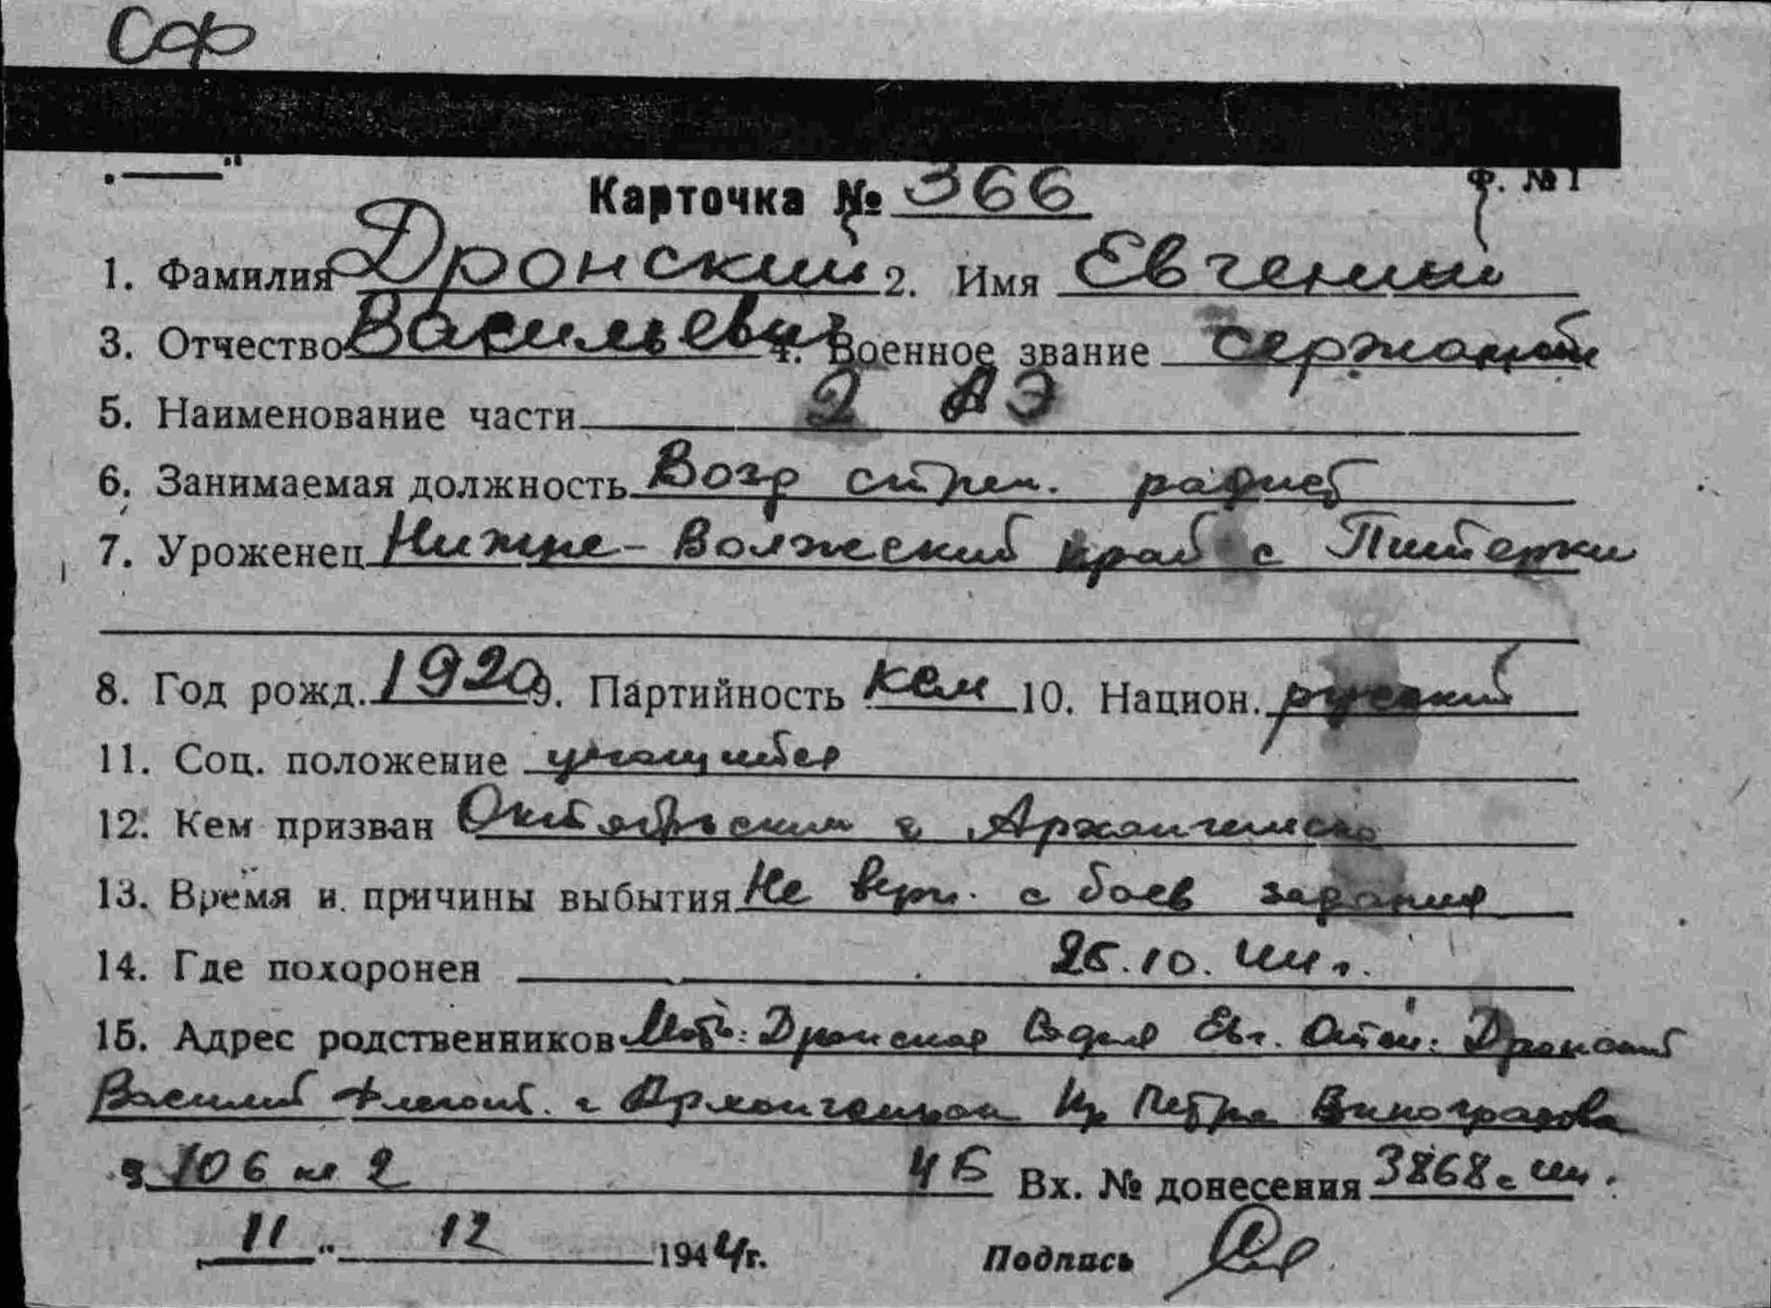 СФ
Ф. № 1
Карточка № 366
1. Фамилия Дронский 2. Имя Евгений
3. Отчество Васильевич 4. Военное звание сержант
5. Наименование части 2 АЭ
6. Занимаемая должность Возд стрел. радист
7. Уроженец Нижне-Волжский край с Питерки
8. Год рожд. 1920 9. Партийность 10. Национ. русский
11. Соц. положение учащийся
12. Кем призван Октябрьским г Архангельска
13. Время и причины выбытия Не верн. с боев задания
14. Где похоронен 25.10.44 г.
15. Адрес родственников Мать: Дронская София Евг. Отец: Дронский
Василий г Архангельск Петра Виноградова
д 106 кв 2 Вх. № донесения 3868с 44.
11 " 12 1944 г. Подпись